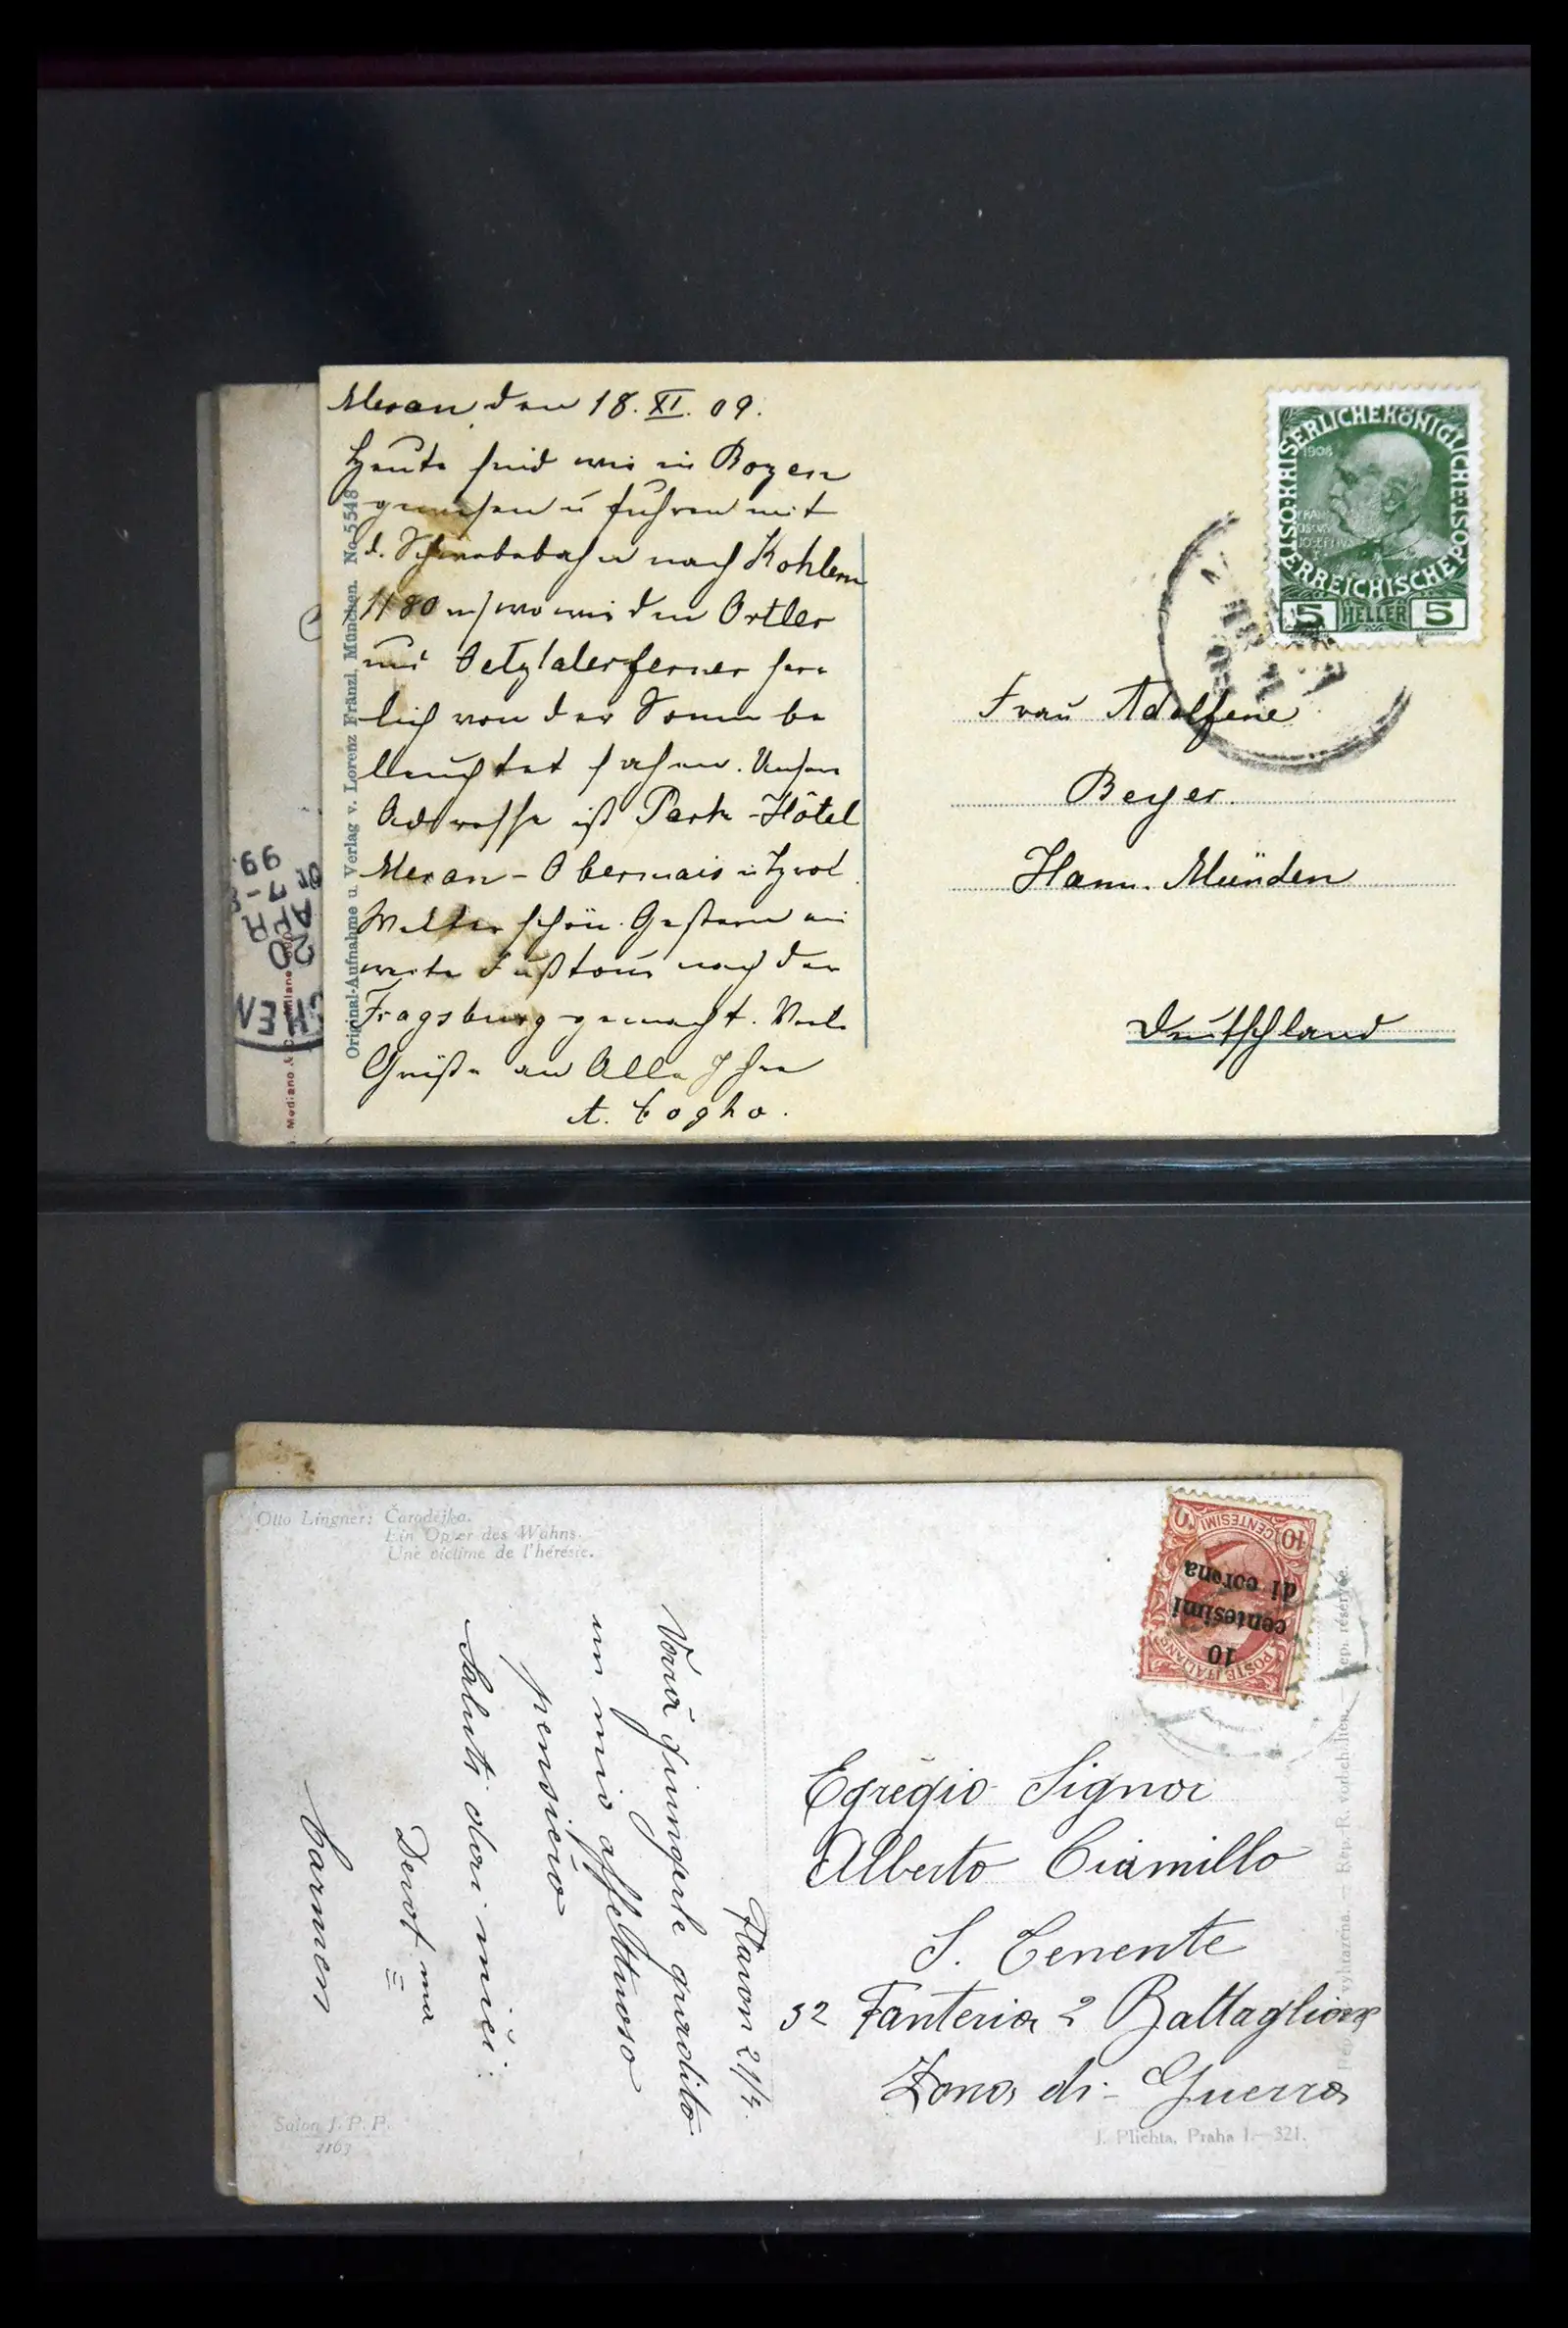 Meran, den 18. XI. 09.
Heute sind wir in Bozen
gewesen u fuhren mit
d. Schwebebahn nach Kohlern
1180 m/ wo wir den Ortler
und Oetztalerferner herr
lich von der Sonne be
leuchtet sahen. Unsere
Adresse ist Park-Hôtel
Meran - Obermais i. Tyrol.
Wetter schön. Gestern ein
weite Fußtour nach der
Fragsburg gemacht. Viele
Grüße an Alle Ihre
A. Cogho.
Original-Aufnahme u. Verlag v. Lorenz Fränzl, München. No. 5548
1908
KAISERLICHE KÖNIGLICHE ÖSTERREICHISCHE POST
FRANCISCVS JOSEPHVS I
5 HELLER 5
Frau Adolfine
Beyer.
Hann. Münden
Deutschland
99.
7-8
20 APR
CHEN
Mediano & C. Milano
Otto Lingner: Čarodějka.
Ein Opfer des Wahns.
Une victime de l'hérésie.
Flavon 21/4.
Vorrà giungerle gradito
un mio affettuoso
pensiero
Saluti dai miei.
Devot ma
Carmen
Salon J. P. P.
2163
10 CENTESIMI 10
POSTE ITALIANE
10
centesimi
di corona
Egregio Signor
Alberto Ciamillo
S. Tenente
32 Fanteria 2 Battaglione
Zona di Guerra
Rep. vyhrazena. — Rep. R. vorbehalten. — Rep. réservée.
J. Plichta, Praha I.—321.